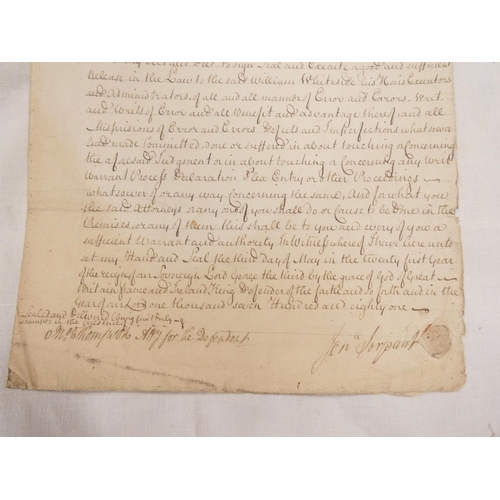 to sign Seal and Execute a good and sufficient
Release in the Law to the said William Whiteside his Heirs Executors
and Administrators, of all and all manner of Error and Errors. Writ
and Writs of Error and all Benefit and advantage thereof and all
Misprisions of Error and Errors Defects and Imperfections whatsoever
had made committed done or suffered in about touching or concerning
the aforesaid Judgment or in about touching or concerning any Writ
Warrant Process Declaration Plea Entry or other Proceedings
whatsoever of or any way concerning the same, And for what you
the said Attorneys or any one of you shall do or cause to be done in the
Premises, or any of them this shall be to you and every of you a
sufficient Warrant and authority In Witness whereof I have hereunto
set my Hand and Seal the third Day of May in the twenty first Year
of the reign of our Sovereign Lord George the third by the grace of God of Great
Britain france and Ireland, King Defender of the faith and so forth and in the
Year of our Lord one thousand seven Hundred and eighty one
Sealed and Delivered being first duly
Stamped in the presence of
Atty for the Defendant
Jon.n Serjeant